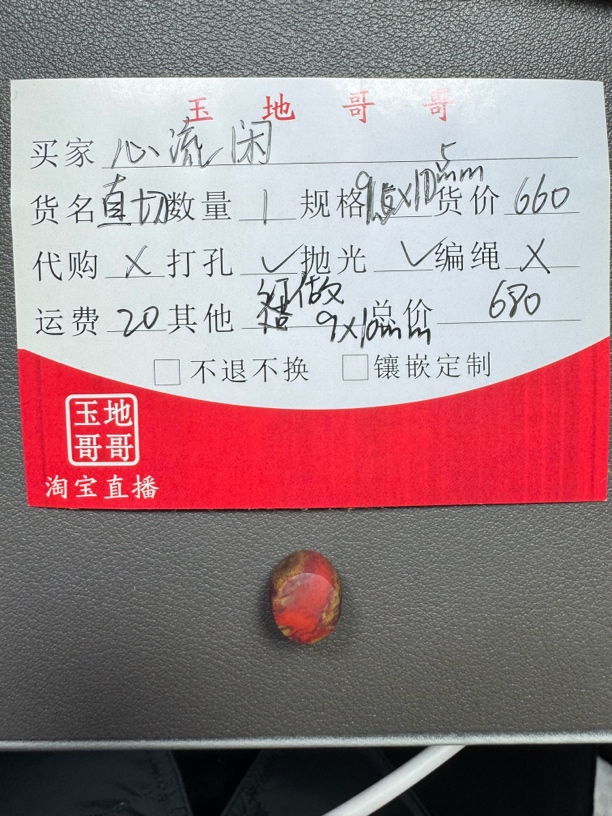 玉地哥哥
买家 心流闲
货名 直切 数量 1 规格 9.5x10.5mm 货价 660
代购 X 打孔 ✓ 抛光 ✓ 编绳 X
运费 20 其他 做 9x10mm 总价 680
□ 不退不换 □ 镶嵌定制
玉地
哥哥
淘宝直播